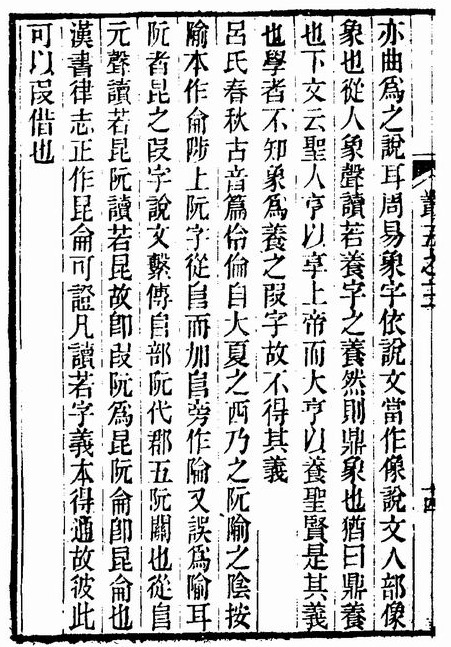 十四
亦曲爲之說耳周易象字依說文當作像說文人部像
象也從人象聲讀若養字之養然則鼎象也猶曰鼎養
也下文云聖人亨以享上帝而大亨以養聖賢是其義
也學者不知象爲養之叚字故不得其義
呂氏春秋古音篇伶倫自大夏之西乃之阮隃之陰按
隃本作侖陟上阮字從𨸏而加𨸏旁作陯又誤爲隃耳
阮者昆之叚字說文繫傳𨸏部阮代郡五阮關也從𨸏
元聲讀若昆阮讀若昆故卽叚阮爲昆阮侖卽昆侖也
漢書律志正作昆侖可證凡讀若字義本得通故彼此
可以叚借也